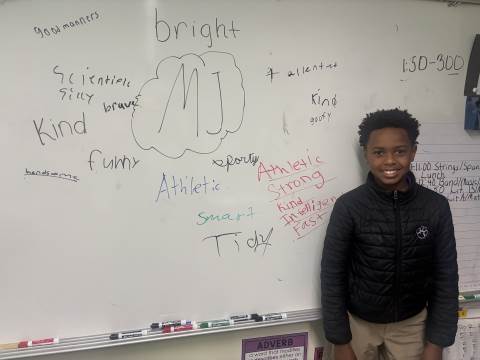 good manners
bright
Scientific
Silly
brave
MJ
talented
Kind
goofy
1:50-300
Kind
funny
handsome
sporty
Athletic
Athletic
Strong
Kind
Intelligen
Fast
Smart
Tidy
11:00 Strings/Span
Lunch
ADVERB